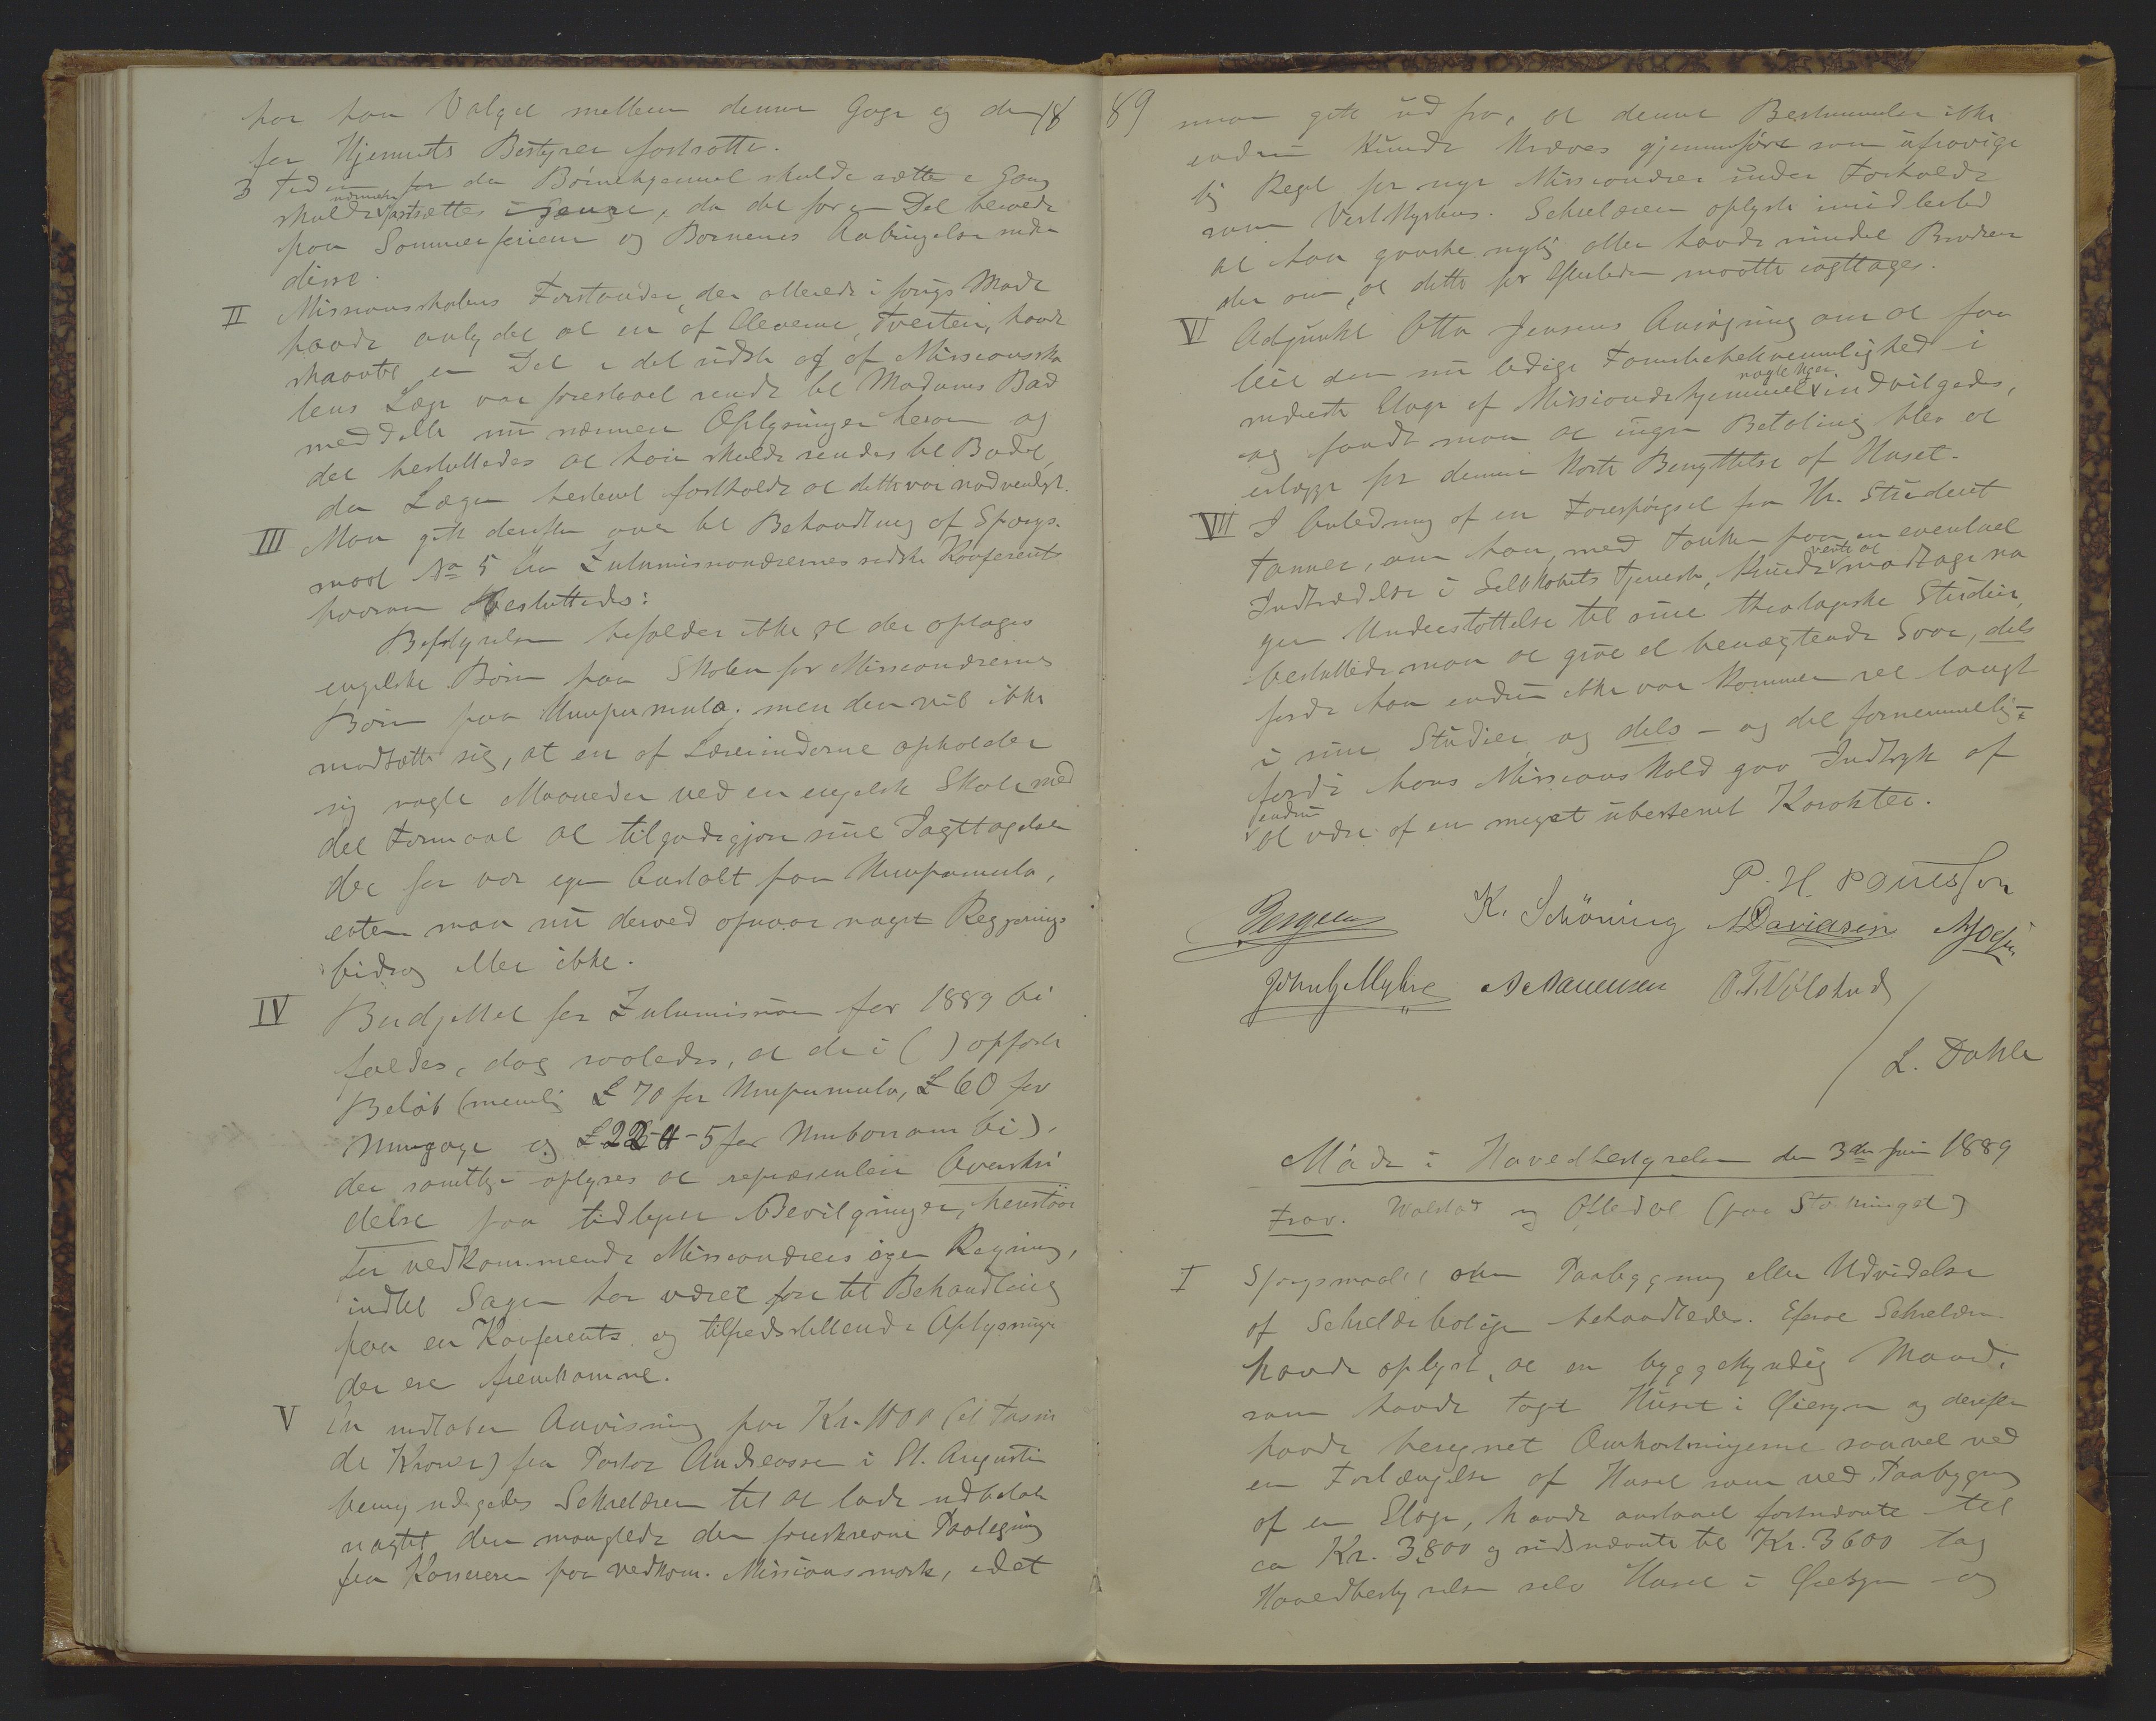 har han Valget mellem denne Gage og den 18
for Hjemmets Bestyrer fastsatte.
3 Tiden for da Børnehjemmet skulde sætte i Gang
skulde nærmere fastsættes i Gange, da det for en Del beroede
paa Sommerferierne og Børnenes Aabringelse under
disse.
II Missionsskolens Forstander, der allerede i forrige Møde
havde antydet at en af Eleverne, Tvesten, havde
skrantet en Del i det sidste og af Missionssko
lens Læge var foreslaaet sendt til Modums Bad
meddelte nu nærmere Oplysninger herom og
det besluttedes at han skulde sendes til Badet,
da Lægen bestemt fastholdt at dette var nødvendigt.
III Man gik derefter over til Behandling af Spørgs-
maal No 5 fra Zulumissionærernes sidste Konferents
hvorom besluttedes:
Bestyrelsen bifalder ikke at der optages
engelske Børn paa Skolen for Missionærernes
Børn paa Umpumulo; men den vil ikke
modsætte sig, at en af Lærerinderne opholder
sig nogle Maaneder ved en engelsk Skole med
det Formaal at tilgodegjøre sine Iagttagelser
der for vor egen Anstalt paa Umpumulo,
enten man nu derved opnaar noget Regjerings
bidrag eller ikke.
IV Budjettet for Zulumissionen for 1889 bi
faldes, dog saaledes, at de i ( ) opførte
Beløb (nemlig £ 70 for Umpumulo, £ 60 for
Umgoye og £ 22-4-5 for Umbonambi),
der samtlige oplyses at repræsentere Overskri
delse paa tidligere Bevilgninger, henstaar
for vedkommende Missionærers egen Regning,
indtil Sagen har været fore til Behandling
paa en Konferents og tilfredsstillende Oplysninger
der ere fremkomne.
V En indløben Anvisning paa Kr. 1000 (et Tusin
de Kroner) fra Pastor Andreassen i St. Augustin
bemyndigedes Sekretæren til at lade udbetale
uagtet den manglede den foreskrevne Paategning
fra Kassereren paa vedkom. Missionsmark, idet
89 man gik ud fra, at denne Bestemmelse ikke
endnu kunde kræves gjennemført som ufravige
lig Regel for nye Missionærer under Forholde
som Vestkystens. Sekretæren oplyste imidlertid
at han ganske nylig atter havde mindet Brødrene
der om, at dette for Eftertiden maatte iagttages.
VI Adjunkt Otto Jensens Ansøgning om at faa
leie den nu ledige Familiebekvemmelighed i
nederste Etage af Missionshjemmet nogle Uger indvilgedes,
og fandt man at ingen Betaling blev at
erlægge for denne korte Benyttelse af Huset.
VII I Anledning af en Forespørgsel fra Hr. Student
Tanner, om han, med Tanken paa en eventuel
Indtrædelse i Selskabets Tjeneste, kunde vente at modtage no
gen Understøttelse til sine theologiske Studier,
besluttede man at give et benægtende Svar, dels
fordi han endnu ikke var kommen ret langt
i sine Studier, og dels – og det fornemmelig –
fordi hans Missionskald gav Indtryk af
endnu at være af en meget ubestemt Karakter.
K. Schöning
Davidsen
L. Dahle
Møde i Hovedbestyrelsen den 3die Juni 1889
Frav. Walstad og Oftedal (paa Storthinget)
I Spørgsmaalet om Paabygning eller Udvidelse
af Sekretærboligen behandledes. Efterat Sekretæren
havde oplyst, at en byggekyndig Mand,
som havde taget Huset i Øiesyn og derefter
havde beregnet Omkostningerne saavel ved
en Forlængelse af Huset som ved Paabygning
af en Etage, havde anslaaet førstnævnte til
ca Kr. 3,800 og sidstnævnte til Kr. 3600 tog
Hovedbestyrelsen selv Huset i Øiesyn og